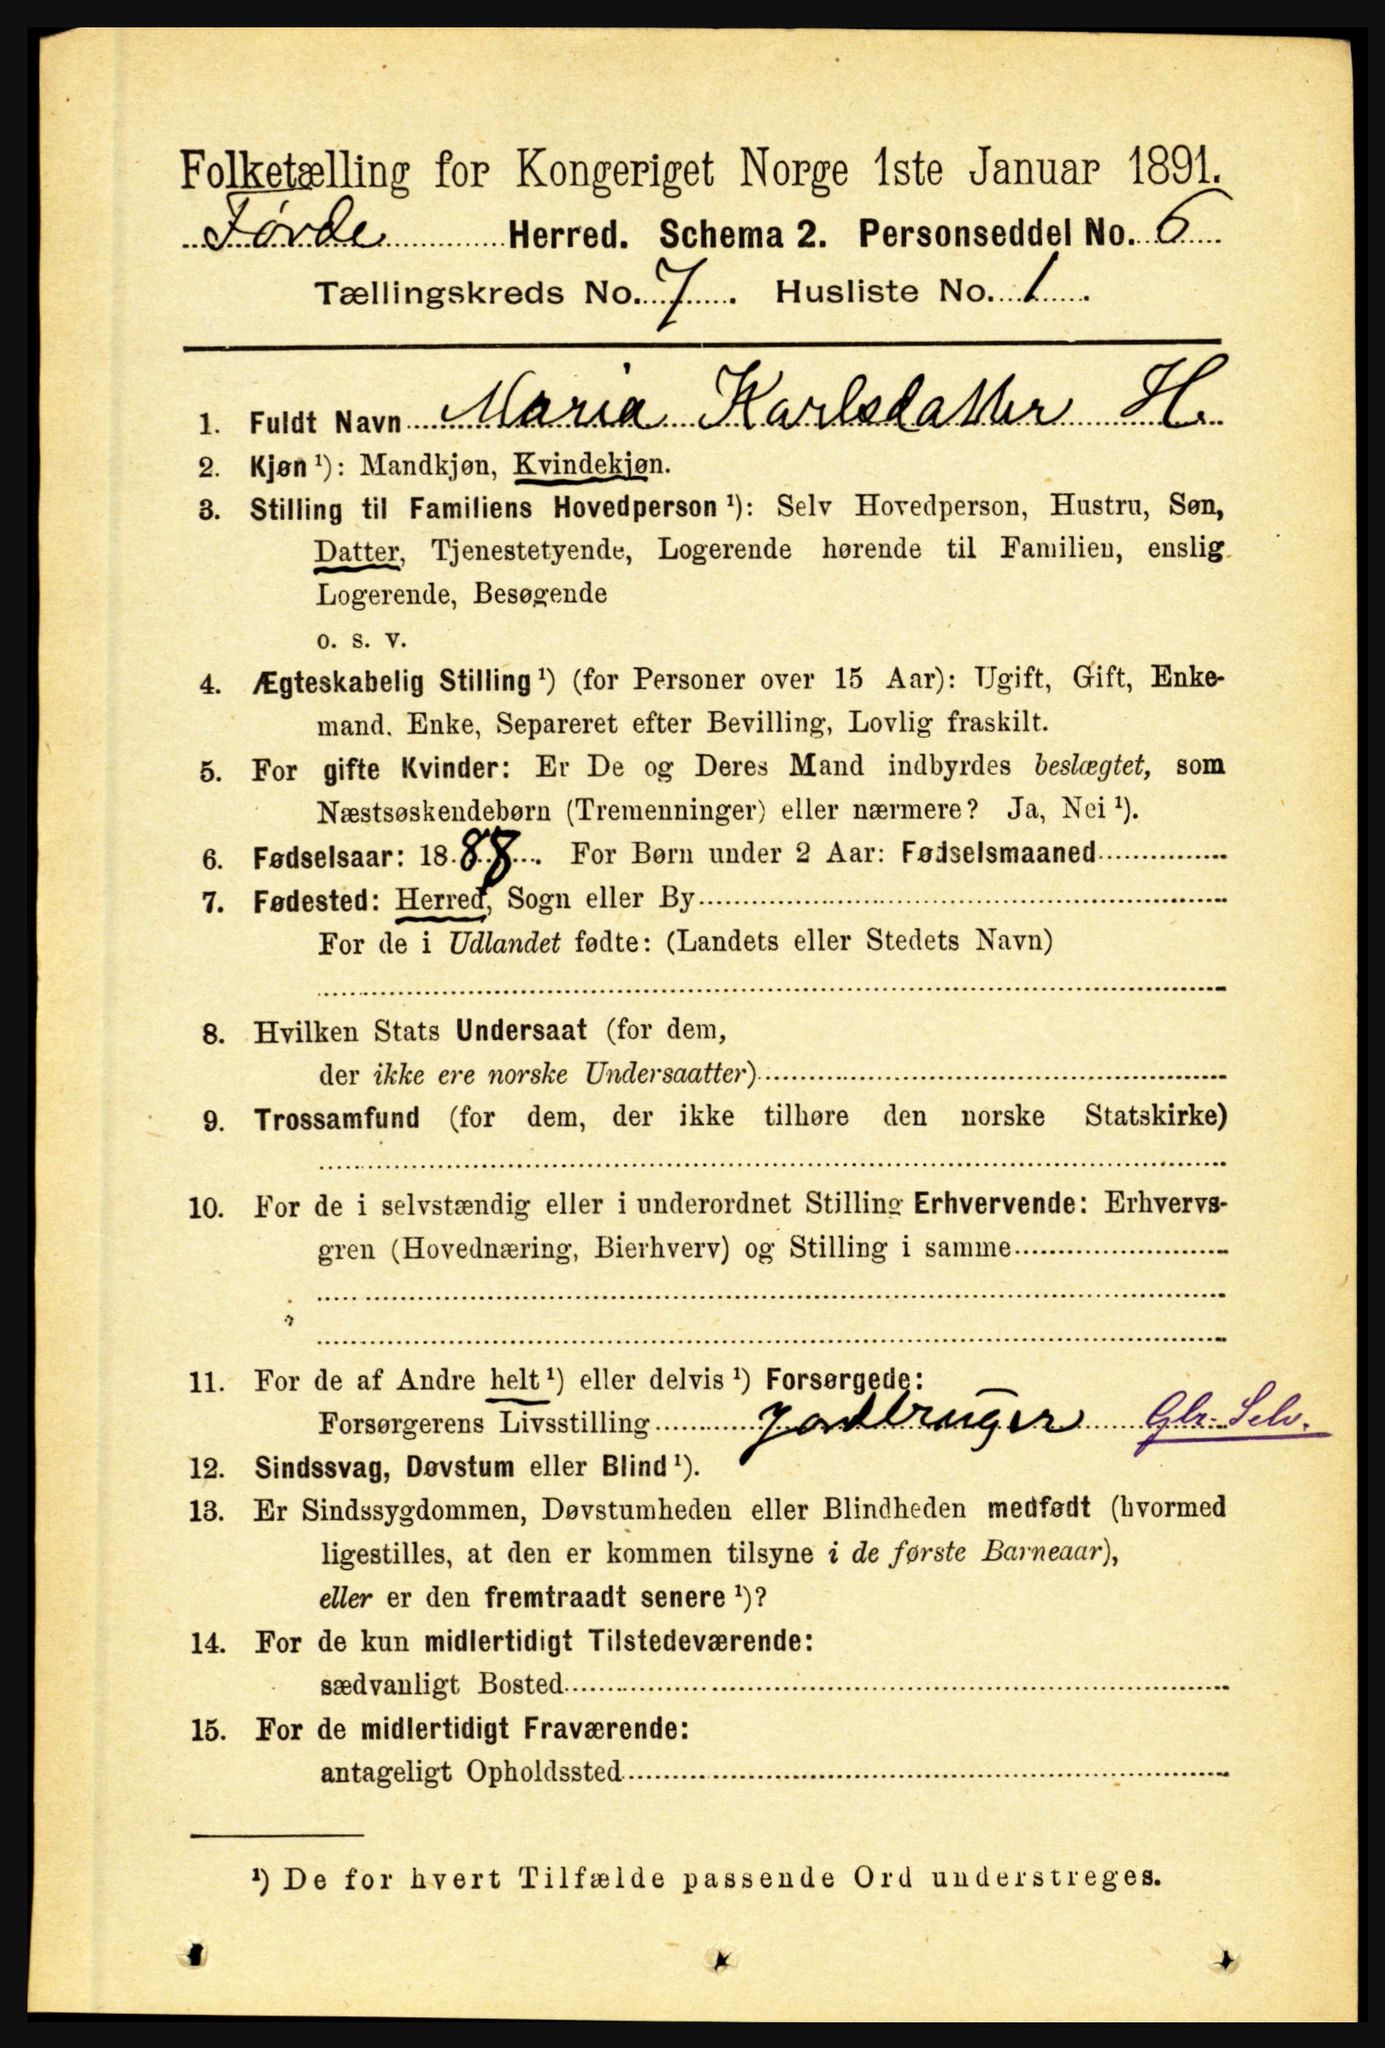 Folketælling for Kongeriget Norge 1ste Januar 1891.
Førde Herred. Schema 2. Personseddel No. 6
Tællingskreds No. 7. Husliste No. 1.
1. Fuldt Navn Maria Karlsdatter H.
2. Kjøn ¹): Mandkjøn, Kvindekjøn.
3. Stilling til Familiens Hovedperson ¹): Selv Hovedperson, Hustru, Søn,
Datter, Tjenestetyende, Logerende hørende til Familien, enslig
Logerende, Besøgende
o. s. v.
4. Ægteskabelig Stilling ¹) (for Personer over 15 Aar): Ugift, Gift, Enke-
mand, Enke, Separeret efter Bevilling, Lovlig fraskilt.
5. For gifte Kvinder: Er De og Deres Mand indbyrdes beslægtet, som
Næstsøskendebørn (Tremenninger) eller nærmere? Ja, Nei ¹).
6. Fødselsaar: 1888. For Børn under 2 Aar: Fødselsmaaned
7. Fødested: Herred, Sogn eller By
For de i Udlandet fødte: (Landets eller Stedets Navn)
8. Hvilken Stats Undersaat (for dem,
der ikke ere norske Undersaatter)
9. Trossamfund (for dem, der ikke tilhøre den norske Statskirke)
10. For de i selvstændig eller i underordnet Stilling Erhvervende: Erhvervs-
gren (Hovednæring, Bierhverv) og Stilling i samme
11. For de af Andre helt ¹) eller delvis ¹) Forsørgede:
Forsørgerens Livsstilling Jordbruger Gbr. Selv.
12. Sindssvag, Døvstum eller Blind ¹).
13. Er Sindssygdommen, Døvstumheden eller Blindheden medfødt (hvormed
ligestilles, at den er kommen tilsyne i de første Barneaar),
eller er den fremtraadt senere ¹)?
14. For de kun midlertidigt Tilstedeværende:
sædvanligt Bosted
15. For de midlertidigt Fraværende:
antageligt Opholdssted
¹) De for hvert Tilfælde passende Ord understreges.